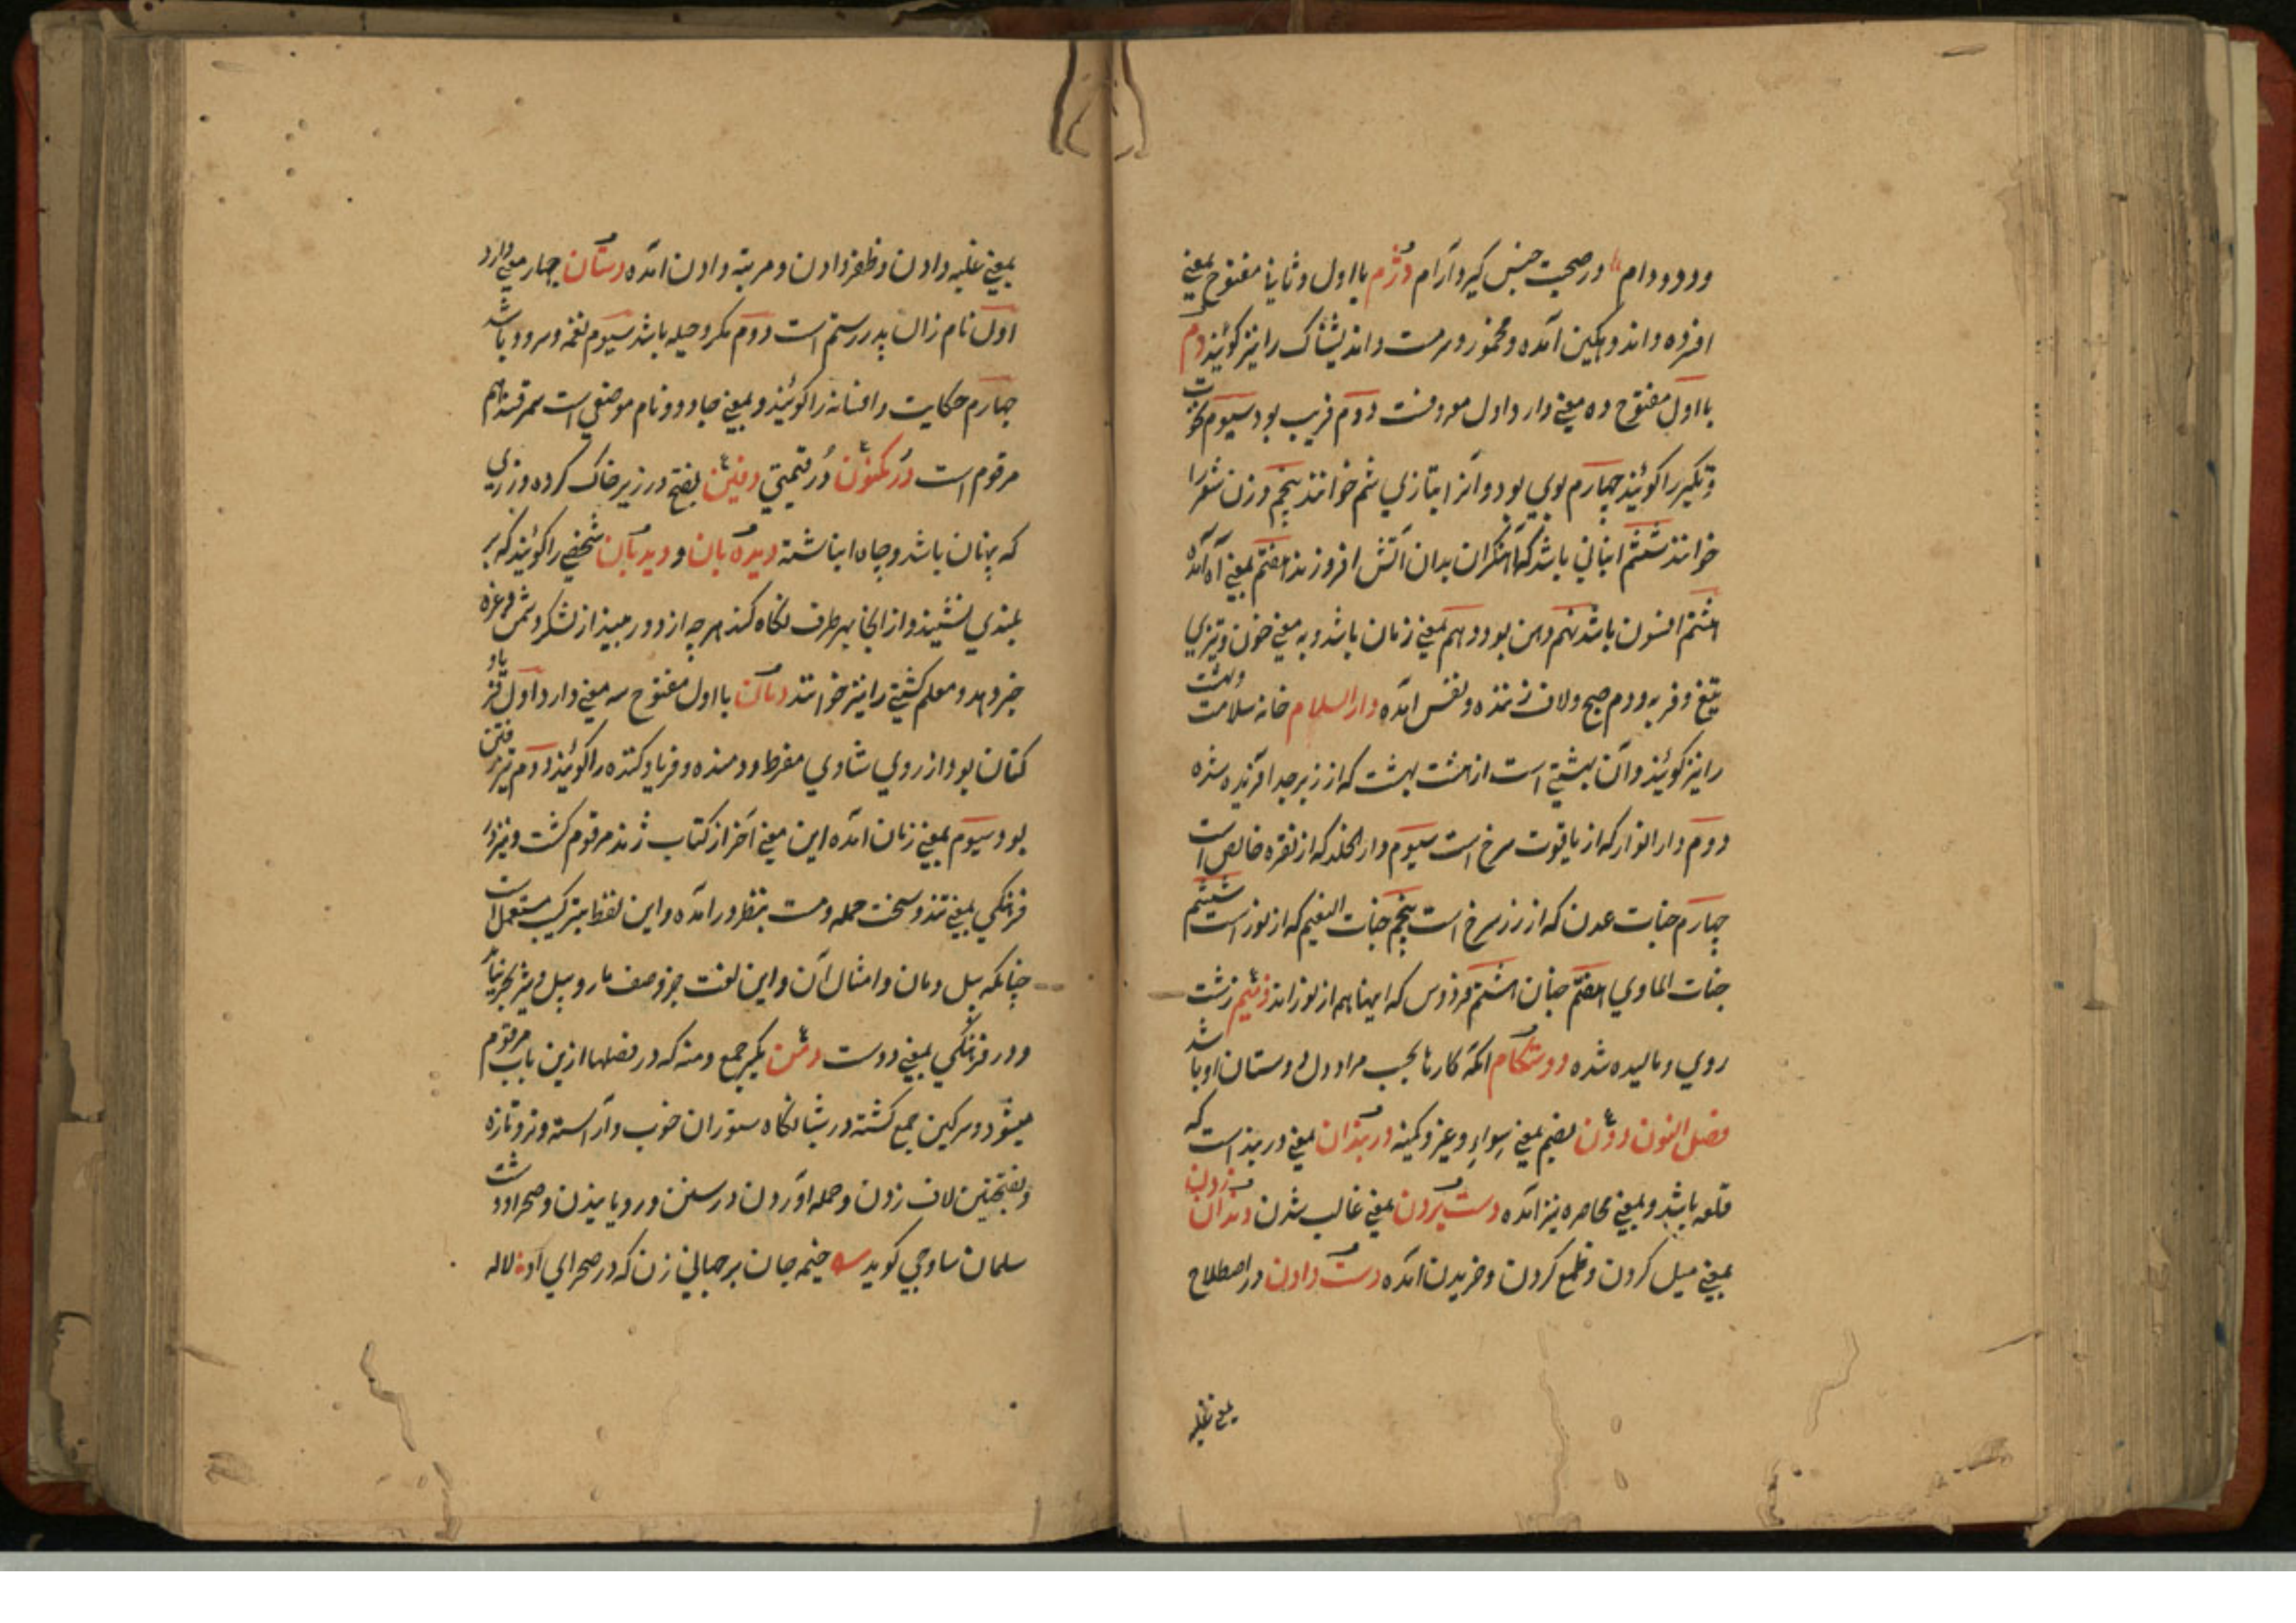 ودد و دام در صحبت جنس گیرد آرام دژم بااول و ثانیا مفتوح بمعنی
افزده و اندوهگین آمده و مخمور و سرمست و اندیشناک را نیز گویند دم
بااول مفتوح ده معنی دارد اول معروفست دوم فریب بود سیوم نخوت
و تکبر را گویند چهارم بوی بود و آنرا بتازی شم خوانند پنجم وزن شعر را
خوانند ششم انبانی باشد که آهنگران بدان آتش افروزند هفتم بمعنی آه آمده
هشتم افسون باشد نهم دهن بود دهم بمعنی زمان باشد و به معنی خون و تیزی
تیغ و فربه و دم صبح و لاف زننده و نفس آمده دار السلام خانه سلامت و بهشت
را نیز گویند و آن بهشتی است از هشت بهشت که از زبرجد آفریده شده
دوم دار القرار که از یاقوت سرخ است سیوم دار الخلد که از نقره خالص است
چهارم جنات عدن که از زر سرخ است پنجم جنات النعیم که از نور است ششم
جنات الماوی هفتم جنان هشتم فردوس که اینها هم از نور اند دمیم زشت
روی و مالیده شده دوستکام انکه کارها بحسب مراد دل دوستان او باشد
فصل النون دون بضم بمعنی سواء و غیر و کمینه دربندان بمعنی دربند است که
قلعه باشد و بمعنی محاصره نیز آمده دست بردن بمعنی غالب شدن دندان زدن
بمعنی میل کردن و طمع کردن و خریدن آمده دست دادن در اصطلاح
بمعنی غلبه
بمعنی غلبه دادن و ظفر دادن و مرتبه دادن آمده دستان چهار معنی دارد
اول نام زال پدر رستم است دوم مکر و حیله باشد سیوم نغمه و سرود باشد
چهارم حکایت و افسانه را گویند و بمعنی جادو و نام موضعی است سمرقند هم
مرقوم است در مکنون در قیمتی دفین بفتح در زیر خاک کرده و زری
که پنهان باشد و چاه انباشته دیده بان و دیدبان شخصی را گویند که بر
بلندی نشیند و از انجا بهر طرف نگاه کند هرچه از دور مبیند از لشکر دشمن و غیره
خبر دهد و معلم کشتی را نیز خوانند دمان بااول مفتوح سه معنی دارد اول فریاد
کنان بود از روی شادی مفرط و دمنده و فریاد کننده را گویند دوم تیز رفتن
بود سیوم بمعنی زمان آمده این معنی آخر از کتاب ژند مرقوم گشت و نیز در
فرهنگی بمعنی تند و سخت حمله و مست بنظر در آمده و این لفظ بترکیب مستعمل است
چنانکه پیل دمان و امثال آن و این لغت جز وصف مار و پیل و شیر بحر نیاید
و در فرهنگی بمعنی دوست دمن بکسر جمع دمنه که در فصلها ازین باب مرقوم
میشود و سرکین جمع گشته در شبانگاه ستوران خوب و آراسته و تر و تازه
و بفتحتین لاف زدن و حمله آوردن در رسن و رویانیدن و صحرا و دشت
سلمان ساوجی گوید خیمه جان بر جبالی زن که در صحرای آن لاله